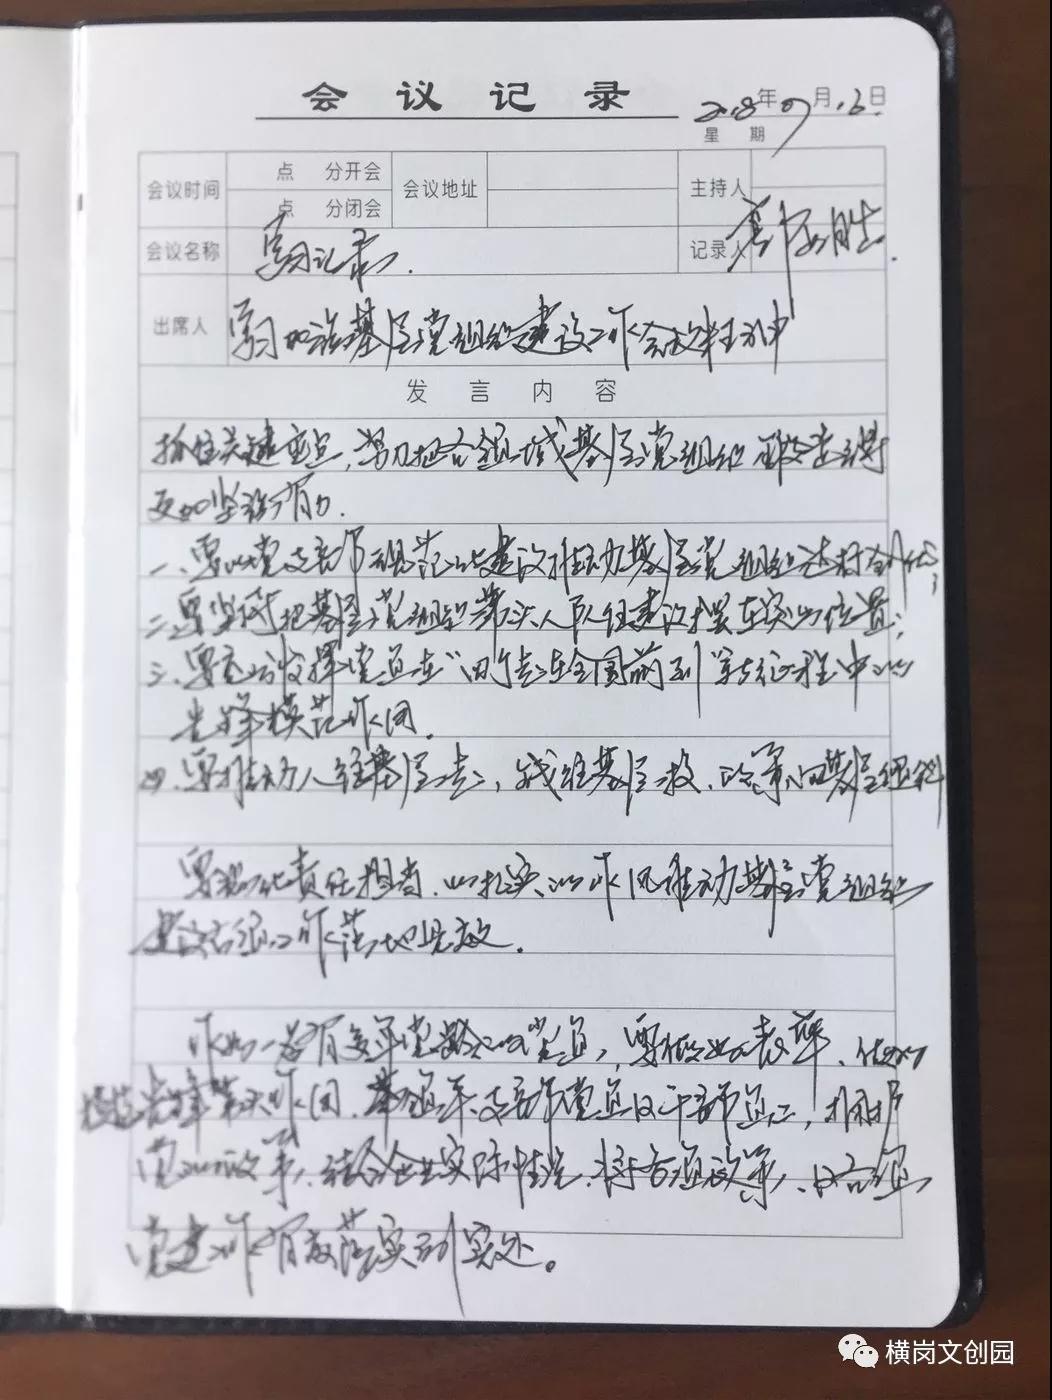 会议记录
2018年9月16日
星 期
会议时间 点 分开会 会议地址 主持人
点 分闭会
会议名称 学习记录. 记录人
出席人 学习加强基层党组织建设工作会议精神
发言内容
抓住关键重点,努力把各领域基层党组织建设得
更加坚强有力.
一、要以党支部规范化建设推动基层党组织达标创优;
二、要坚持把基层党组织带头人队伍建设摆在突出位置;
三、要充分发挥党员在"四个走在全国前列"新征程中的
先锋模范作用.
四、要推动人往基层走,钱往基层投,政策向基层倾斜
要强化责任担当,以扎实的作风推动基层党组织
建设各项工作落地见效.
作为一名有多年党龄的党员,要做出表率,做好
模范先锋带头作用.带领 支部党员及干部员工,拥护
党的政策,结合企业实际情况,将各项政策、及各项
党建工作有效落实到实处。
横岗文创园